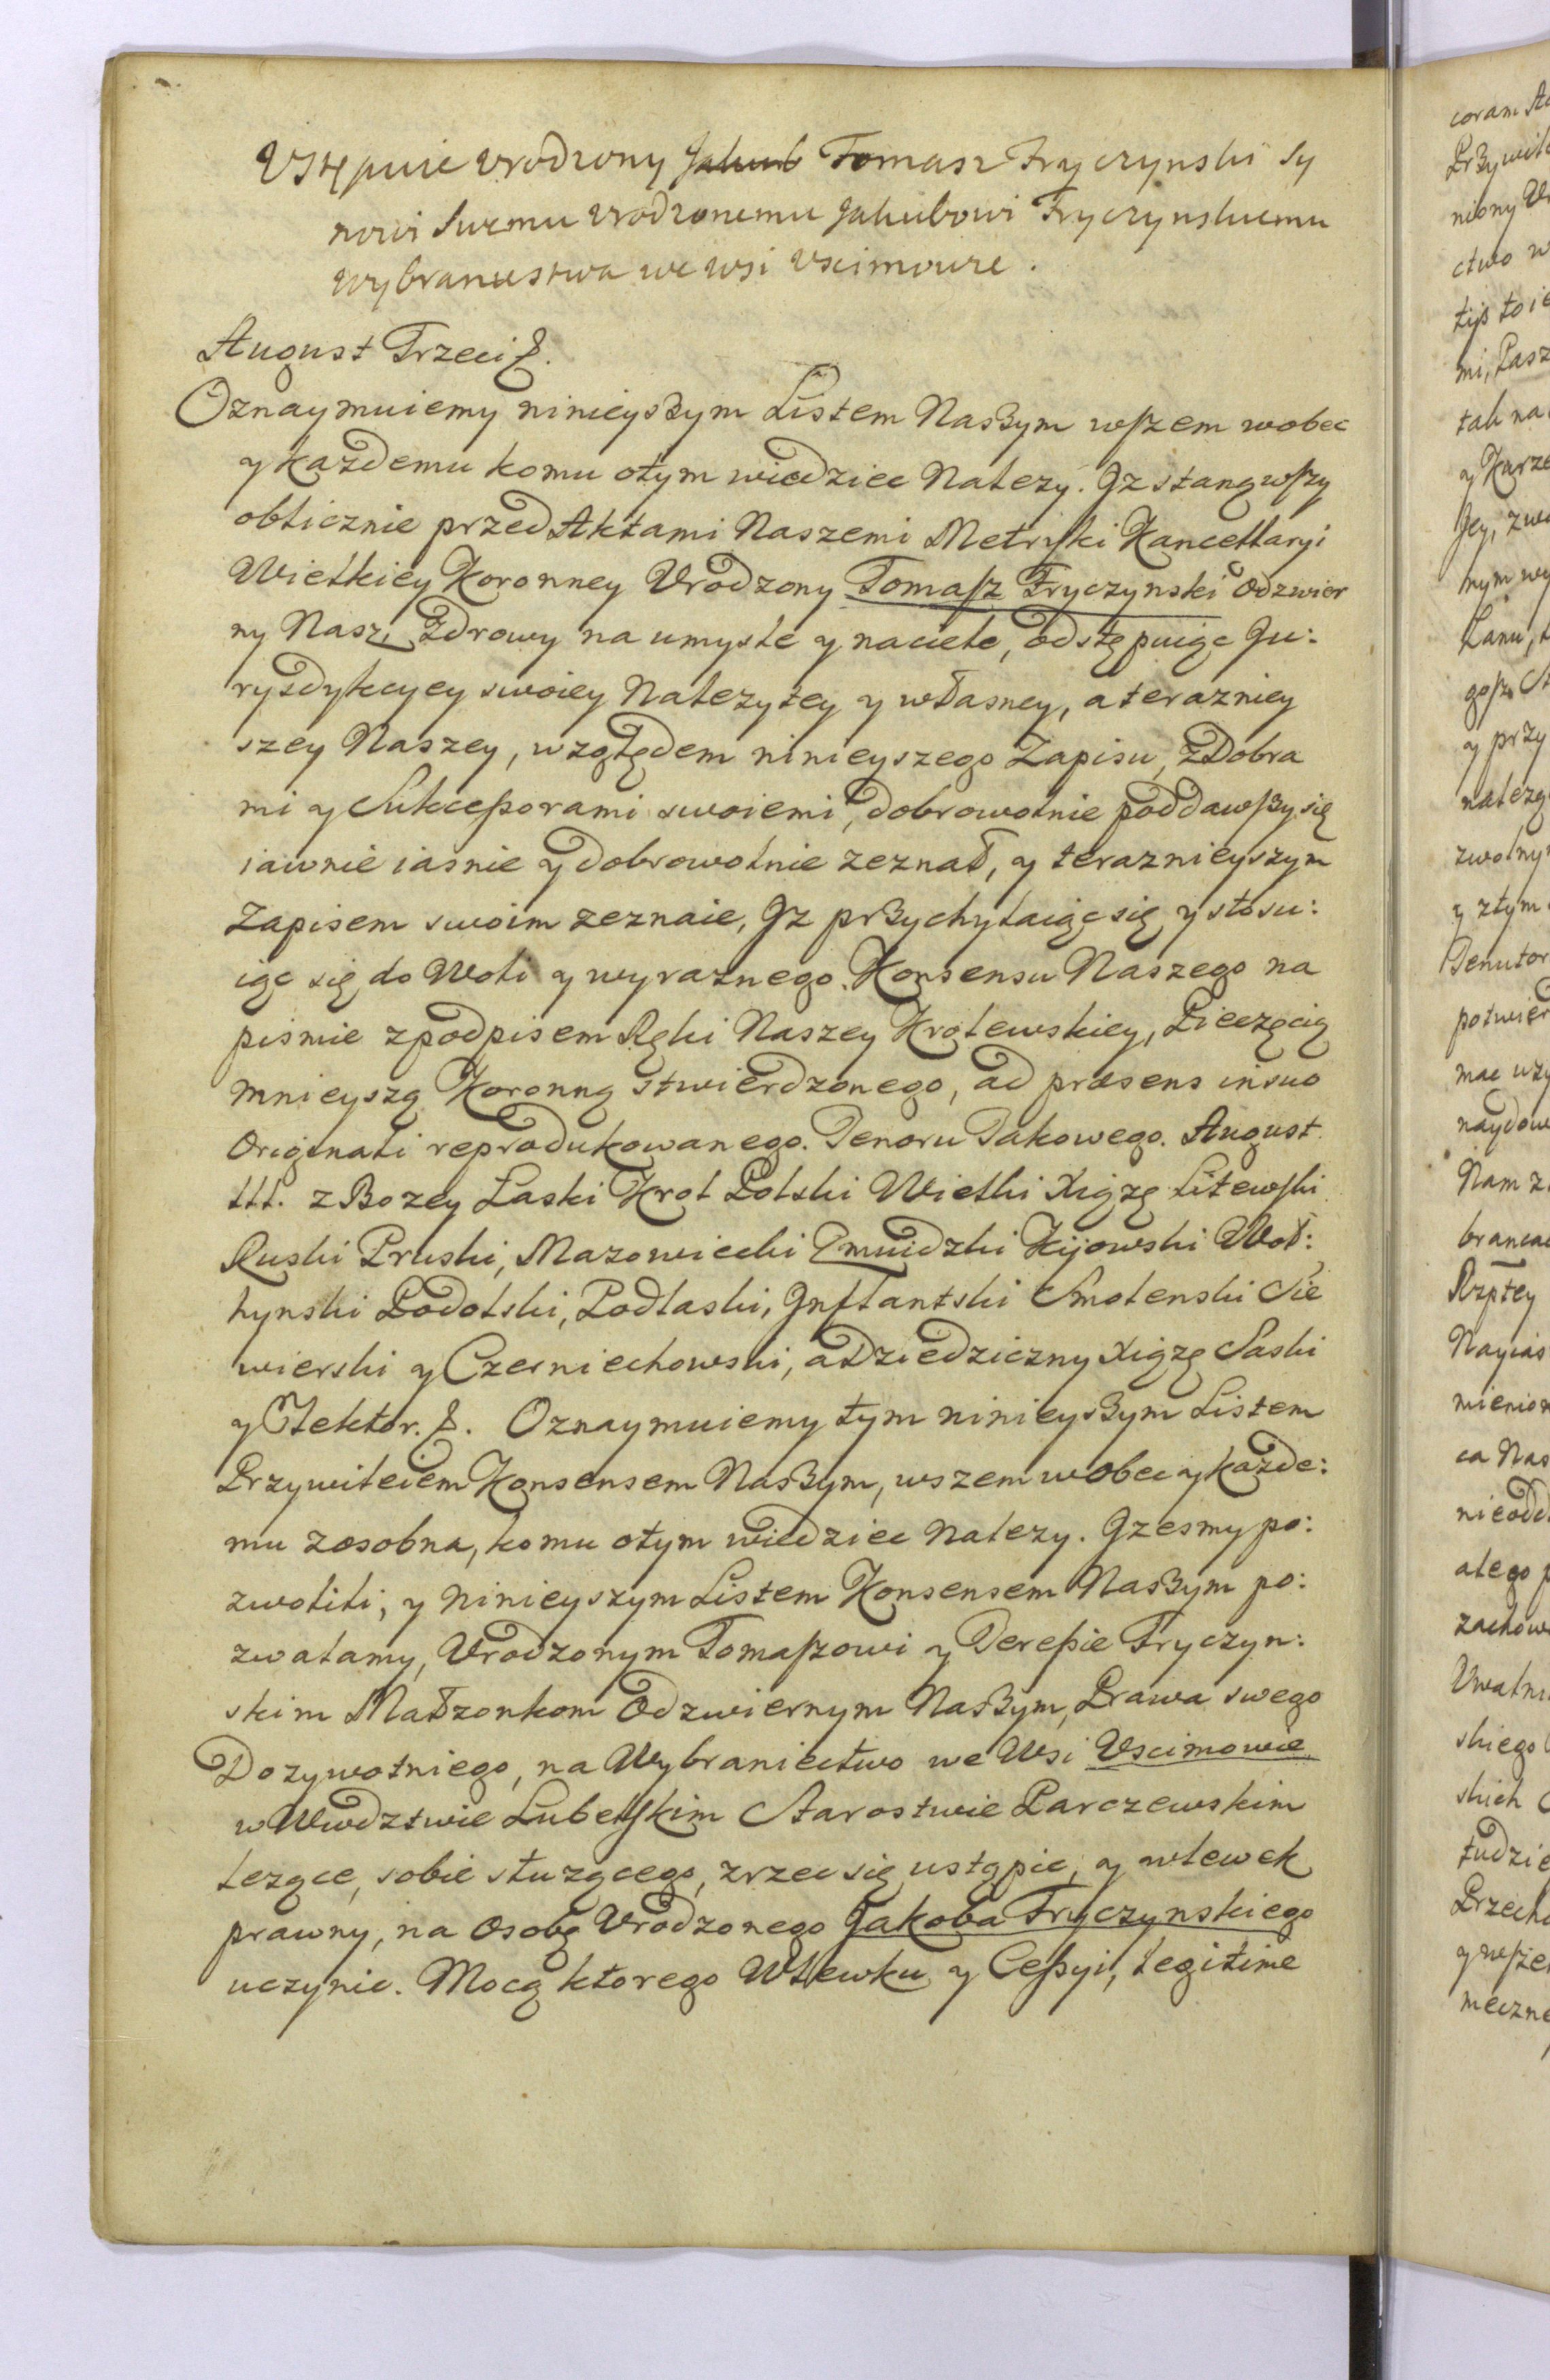 Vstępuie vrodzony Jakub Tomasz Fryczynski Sy
nowi Swemu vrodzonemu Jakubowi Fryczynskiemu
wybraniestwa we wsi vscimowie.
August Trzeci &.
Oznaymuiemy ninieyszym Listem Naszym wszem wobec
y każdemu komu otym wiedziec Nalezy. Iz stanąwszy
oblicznie przed Aktami Naszemi Metryki Kancellaryi
Wielkiey Koronney Vrodzony Tomasz Fryczynski Odzwier
ny Nasz, Zdrowy na umysle y naciele, odstępuiąc Ju:
rysdykcyey swoiey Nalezytey y własney, a terazniey
szey Naszey, względem ninieyszego Zapisu, z Dobra
mi y Sukcessorami swoiemi, dobrowolnie poddawszy się
iawnie iasnie y dobrowolnie zeznał, y teraznieyszym
Zapisem swoim zeznaie, Iz przychylaiąc się y stosu:
iąc się do Woli y wyraznego Konsensu Naszego na
pismie z podpisem Ręki Naszey Krolewskiey, Pieczęcią
mnieyszą Koronną stwierdzonego, ad præsens in suo
Originali reprodukowanego. Tenoru Takowego. August
III. z Bozey Łaski Krol Polski Wielki Xiąze Litewski
Ruski Pruski, Mazowiecki Zmuidzki Kijowski Woł:
hynski Podolski, Podlaski, Inflantski Smolenski Sie
wierski y Czerniechowski, a Dziedziczny Xiąze Saski
y Elektor. &. Oznaymuiemy tym ninieyszym Listem
Przywileiem Konsensem Naszym, wszem wobec y kazde:
mu zosobna, komu otym wiedziec Nalezy. Izesmy po:
zwolili, y Ninieyszym Listem Konsensem Naszym po:
zwalamy, Vrodzonym Tomaszowi y Teressie Fryczyn:
skim Małzonkom Odzwiernym Naszym, Prawa swego
Dozywotniego, na Wybraniectwo we Wsi Vscimowie
w Wwdztwie Lubelskim Starostwie Parczewskim
lezące, sobie słuzącego, zrzec się ustąpic, y wlewek
prawny, na Osobę Vrodzonego Jakoba Fryczynskiego
uczynic. Mocą ktorego Wlewku y Cessyi, legitime